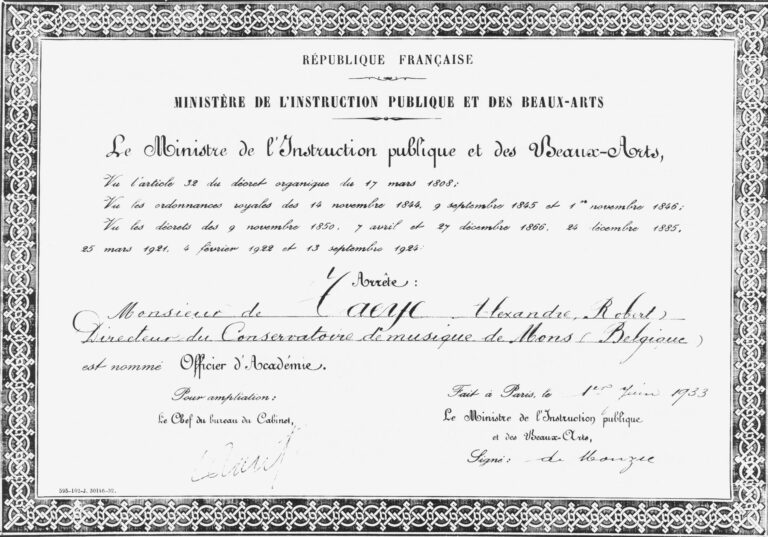 RÉPUBLIQUE FRANÇAISE
MINISTÈRE DE L'INSTRUCTION PUBLIQUE ET DES BEAUX-ARTS
Le Ministre de l'Instruction publique et des Beaux-Arts,
Vu l'article 32 du décret organique du 17 mars 1808;
Vu les ordonnances royales des 14 novembre 1844, 9 septembre 1845 et 1er novembre 1846;
Vu les décrets des 9 novembre 1850, 7 avril et 27 décembre 1866, 24 décembre 1885,
25 mars 1921, 4 février 1922 et 13 septembre 1924:
Arrête:
Monsieur de Taeye Alexandre, Robert)
Directeur du Conservatoire de musique de Mons (Belgique)
est nommé Officier d'Académie.
Pour ampliation:
Le Chef du bureau du Cabinet,
Fait à Paris, le 1er Juin 1933
Le Ministre de l'Instruction publique
et des Beaux-Arts,
Signé: de Monzie